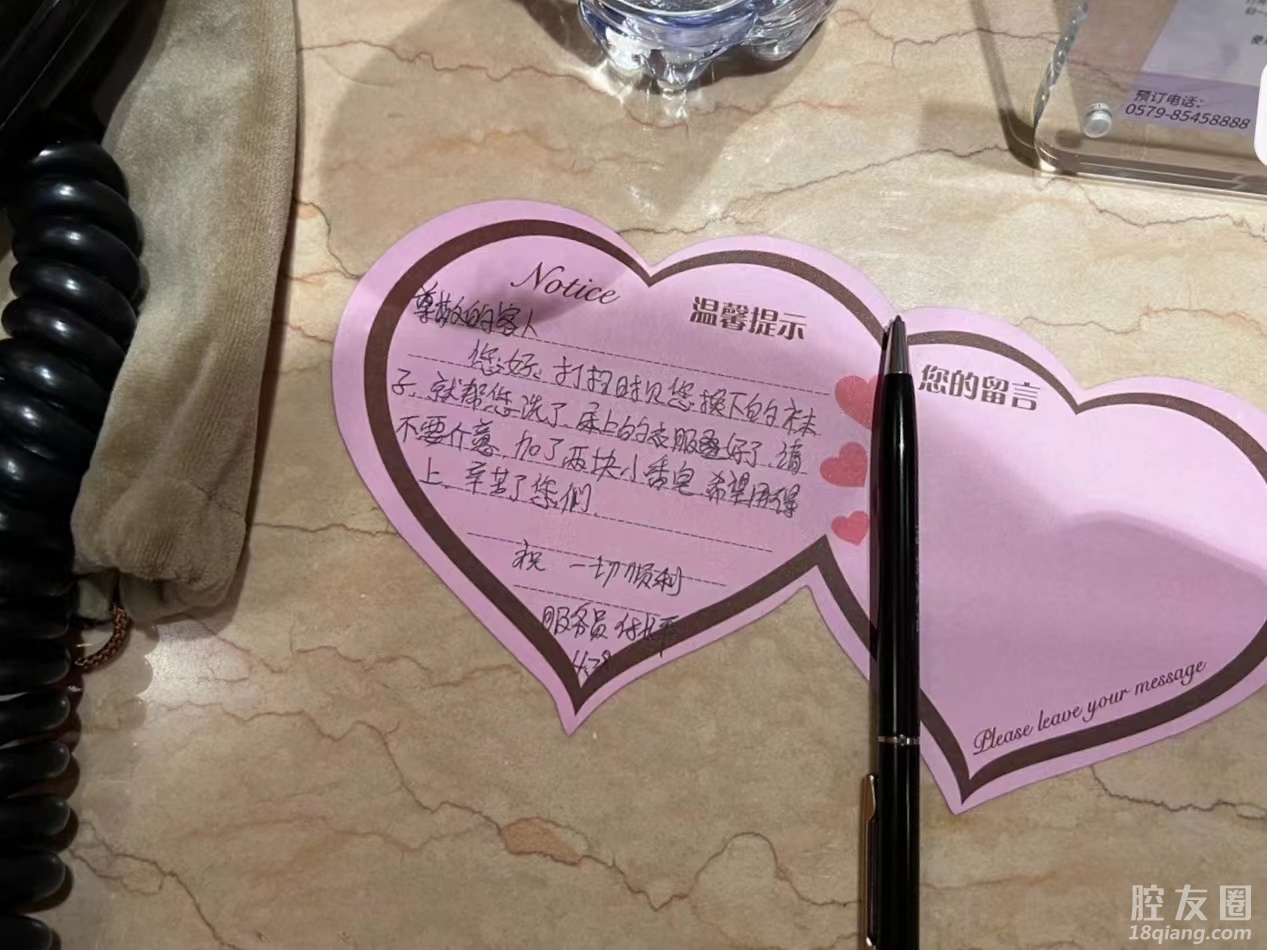 预订电话:
0579-85458888
Notice
温馨提示
尊敬的客人
您好、打扫时见您换下的袜
子、就帮您洗了、床上的衣服叠好了、请
不要介意、加了两块小香皂、希望用得
上、辛苦了您们、
祝 一切顺利
服务员
4.28
您的留言
Please leave your message
腔友圈
18qiang.com